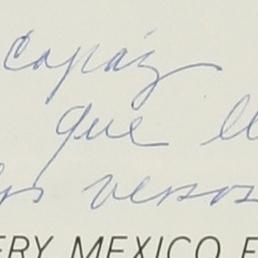 capaz
que ll
los versos
ERY MEXICO F